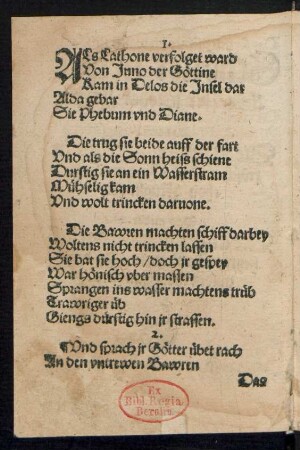 1.
ALs Lathone verfolget ward
Von Juno der Göttine
Kam in Delos die Insel dar
Alda gebar
Sie Phebum vnd Diane.
Die trug sie beide auff der fart
Vnd als die Sonn heiß schiene
Durstig sie an ein Wasserstram
Mühselig kam
Vnd wolt trincken daruone.
Die Bawren machten schiff darbey
Woltens nicht trincken lassen
Sie bat sie hoch / doch jr gespey
War hönisch vber massen
Sprangen ins wasser machtens trüb
Trawriger üb
Giengs dürstig hin jr strassen.
2.
Vnd sprach jr Götter übet rach
An den vntrewen Bawren
Das
Ex
Bibl. Regia
Berolin.